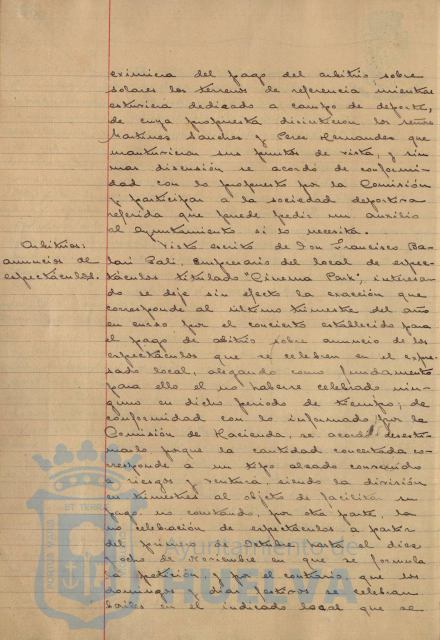 eximiera del pago del arbitrio sobre
solares los terrenos de referencia mientras
estuviera dedicado a campo de deporte,
de cuya propuesta disintieron los señores
Martinez Sanchez y Perez Hernandez que
mantuvieron sus puntos de vista, y sin
mas discusión se acordó de conformi-
dad con lo propuesto por la Comisión
y participar a la sociedad deportiva
referida que puede pedir un auxilio
al Ayuntamiento si lo necesita.
Arbitrios:
anuncios de
espectáculos.
Visto escrito de Don Francisco
Empresario del local de espec-
táculos titulado "Cinema Park", interesan-
do se deje sin efecto la exacción que
corresponde al último trimestre del año
en curso por el concierto establecido para
el pago de arbitrio sobre anuncio de los
espectáculos que se celebren en el expre-
sado local, alegando como fundamento
para ello el no haberse celebrado nin-
guno en dicho periodo de tiempo; de
conformidad con lo informado por la
Comisión de Hacienda, se acordó desesti-
marlo porque la cantidad concertada co-
rresponde a un tipo alzado convenido
a riesgo y ventura, siendo la división
en trimestres al objeto de facilitar su
pago, no constando, por otra parte, la
no celebración de espectáculos a partir
del primero de Octubre hasta el diez
y ocho de Noviembre en que se formula
la petición, y por el contrario, que los
domingos y días festivos se celebran
bailes en el indicado local que se
Ayuntamiento de
HUELVA